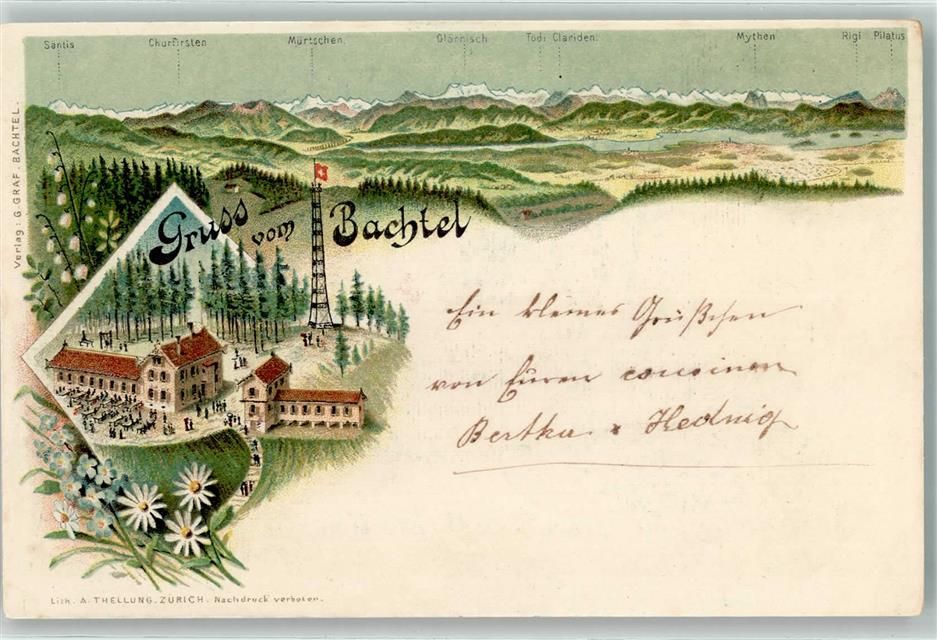 Säntis Churfirsten Mürtschen. Glärnisch Tödi Clariden. Mythen Rigi Pilatus
Verlag: G. GRAF. BACHTEL.
Gruss vom Bachtel
Ein kleines Grüßchen
von Euren cousinen
Bertha & Hedwig
Lith. A. THELLUNG. ZÜRICH. Nachdruck verboten.